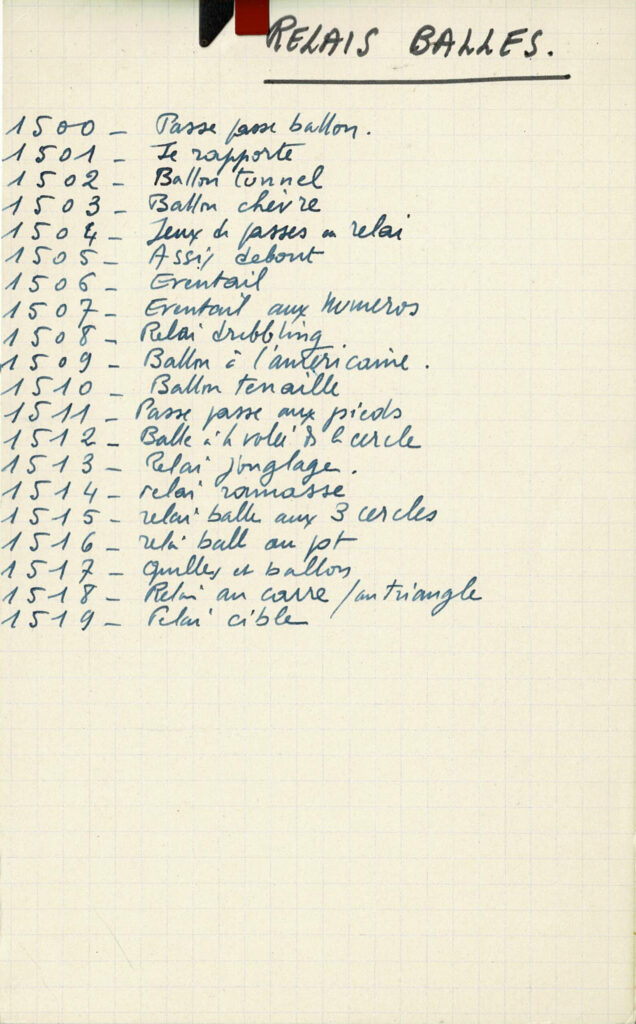 RELAIS BALLES.
1500 - Passe passe ballon.
1501 - Je rapporte
1502 - Ballon tunnel
1503 - Ballon chèvre
1504 - Jeux de passes en relai
1505 - Assis debout
1506 - Eventail
1507 - Eventail aux numeros
1508 - Relai dribbling
1509 - Ballon à l'américaine.
1510 - Ballon tenaille
1511 - Passe passe aux pieds
1512 - Balle à la volée le cercle
1513 - Relai jonglage.
1514 - relai ramasse
1515 - relai balle aux 3 cercles
1516 - relai balle au pot
1517 - Quilles et ballons
1518 - Relai au carre / au triangle
1519 - Relai cible